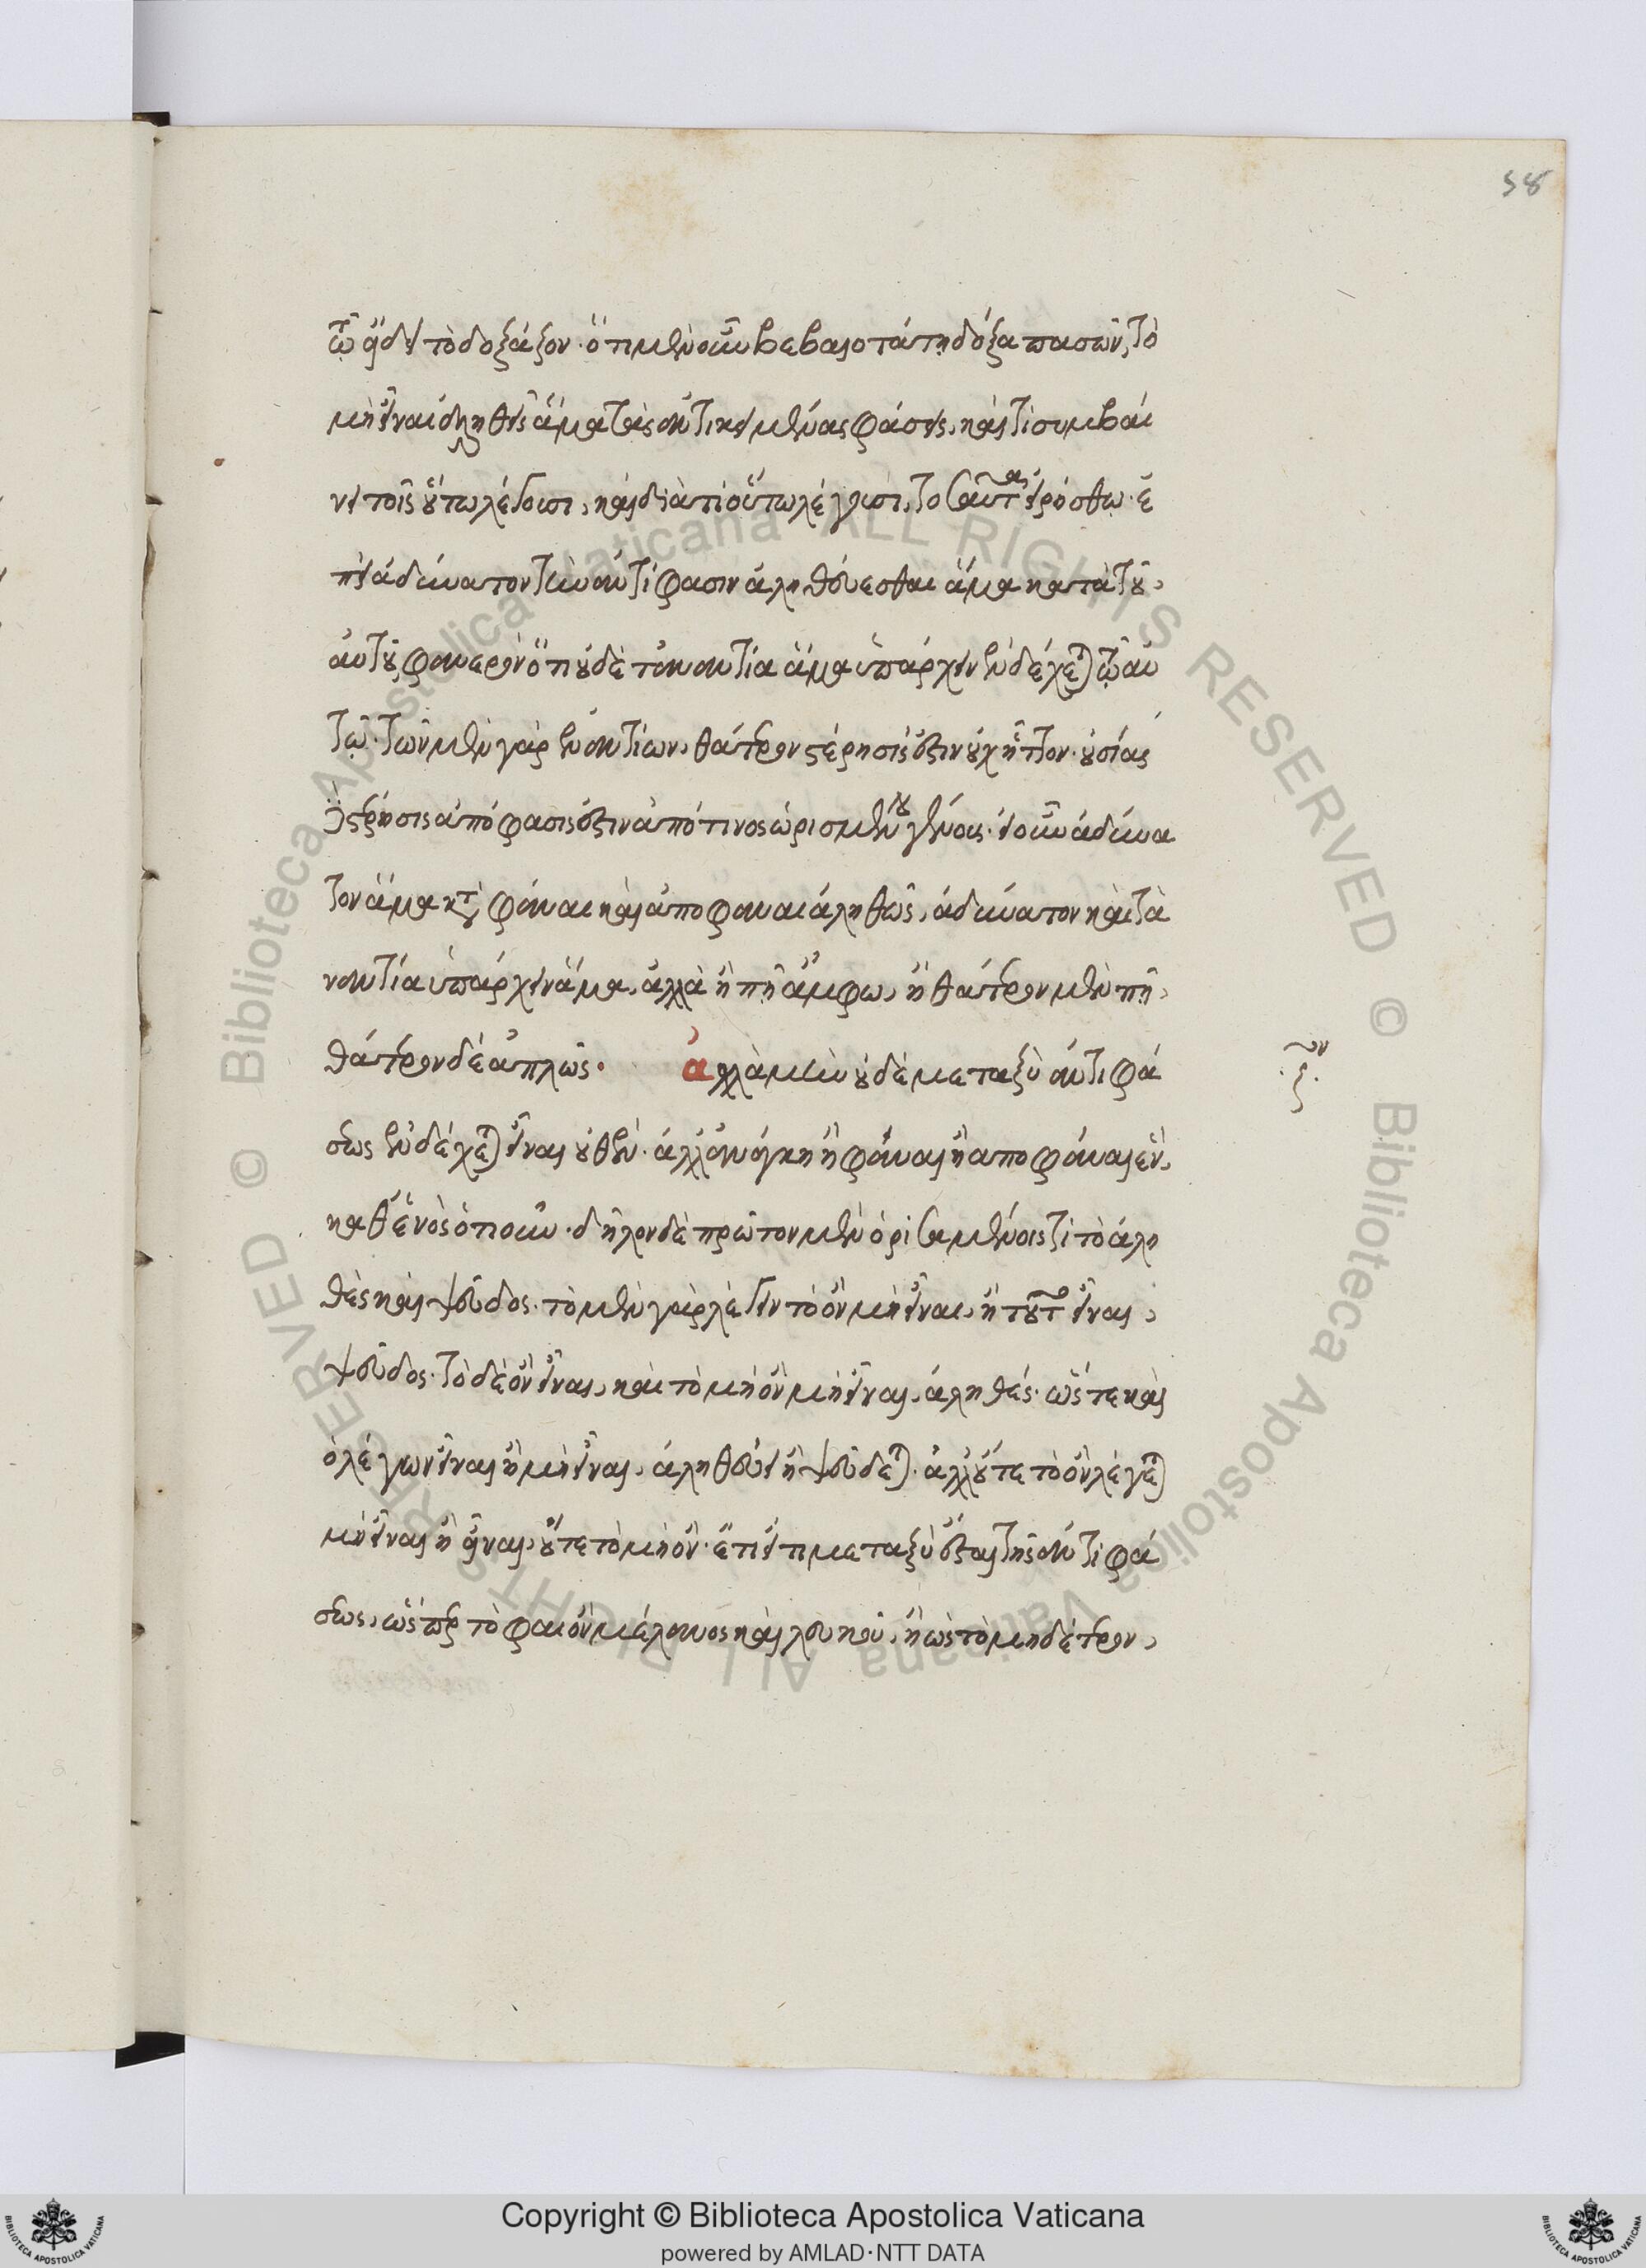 58
τῷ εἴδει τὸ δοξάζον· ὅτι μὲν οὖν βεβαιοτάτη δόξα πασῶν, τὸ
μὴ εἶναι ἀληθεῖς ἅμα τὰς ἀντικειμένας φάσεις, καὶ τί συμβαί
νει τοῖς οὕτω λέγουσι, καὶ διὰ τί οὕτω λέγουσι, τοσαῦτα εἰρήσθω· ἐ
πεὶ ἀδύνατον τὴν ἀντίφασιν ἀληθεύεσθαι ἅμα κατὰ τοῦ
αὐτοῦ φανερὸν ὅτι οὐδὲ τἀναντία ἅμα ὑπάρχειν ἐνδέχεται τῷ αὐ
τῷ· τῶν μὲν γὰρ ἐναντίων, θάτερον στέρησίς ἐστιν οὐχ ἧττον· οὐσίας
δὲ στέρησις ἀπόφασίς ἐστιν ἀπό τινος ὡρισμένου γένους· εἰ οὖν ἀδύνα
τον ἅμα καταφάναι καὶ ἀποφάναι ἀληθῶς, ἀδύνατον καὶ τἀ
ναντία ὑπάρχειν ἅμα, ἀλλὰ ἢ πῆ ἄμφω, ἢ θάτερον μὲν πῆ,
θάτερον δὲ ἁπλῶς· ἀλλὰ μὴν οὐδὲ μεταξὺ ἀντιφά
σεως ἐνδέχεται εἶναι οὐθέν· ἀλλ' ἀνάγκη ἢ φάναι ἢ ἀποφάναι ἓν
καθ' ἑνὸς ὁτιοῦν· δῆλον δὲ πρῶτον μὲν ὁρισαμένοις τί τὸ ἀλη
θὲς καὶ ψεῦδος· τὸ μὲν γὰρ λέγειν τὸ ὂν μὴ εἶναι, ἢ τοῦτο εἶναι,
ψεῦδος· τὸ δὲ ὂν εἶναι, καὶ τὸ μὴ ὂν μὴ εἶναι, ἀληθές· ὥστε καὶ
ὁ λέγων εἶναι ἢ μὴ εἶναι, ἀληθεύει ἢ ψεύδεται· ἀλλ' οὔτε τὸ ὂν λέγεται
μὴ εἶναι ἢ εἶναι, οὔτε τὸ μὴ ὄν· ἔτι εἴ τι μεταξὺ ἔσται τῆς ἀντιφά
σεως, ὥσπερ τὸ φαιὸν μέλανος καὶ λευκοῦ, ἢ ὡς τὸ μηδέτερον,
Copyright © Biblioteca Apostolica Vaticana
powered by AMLAD·NTT DATA